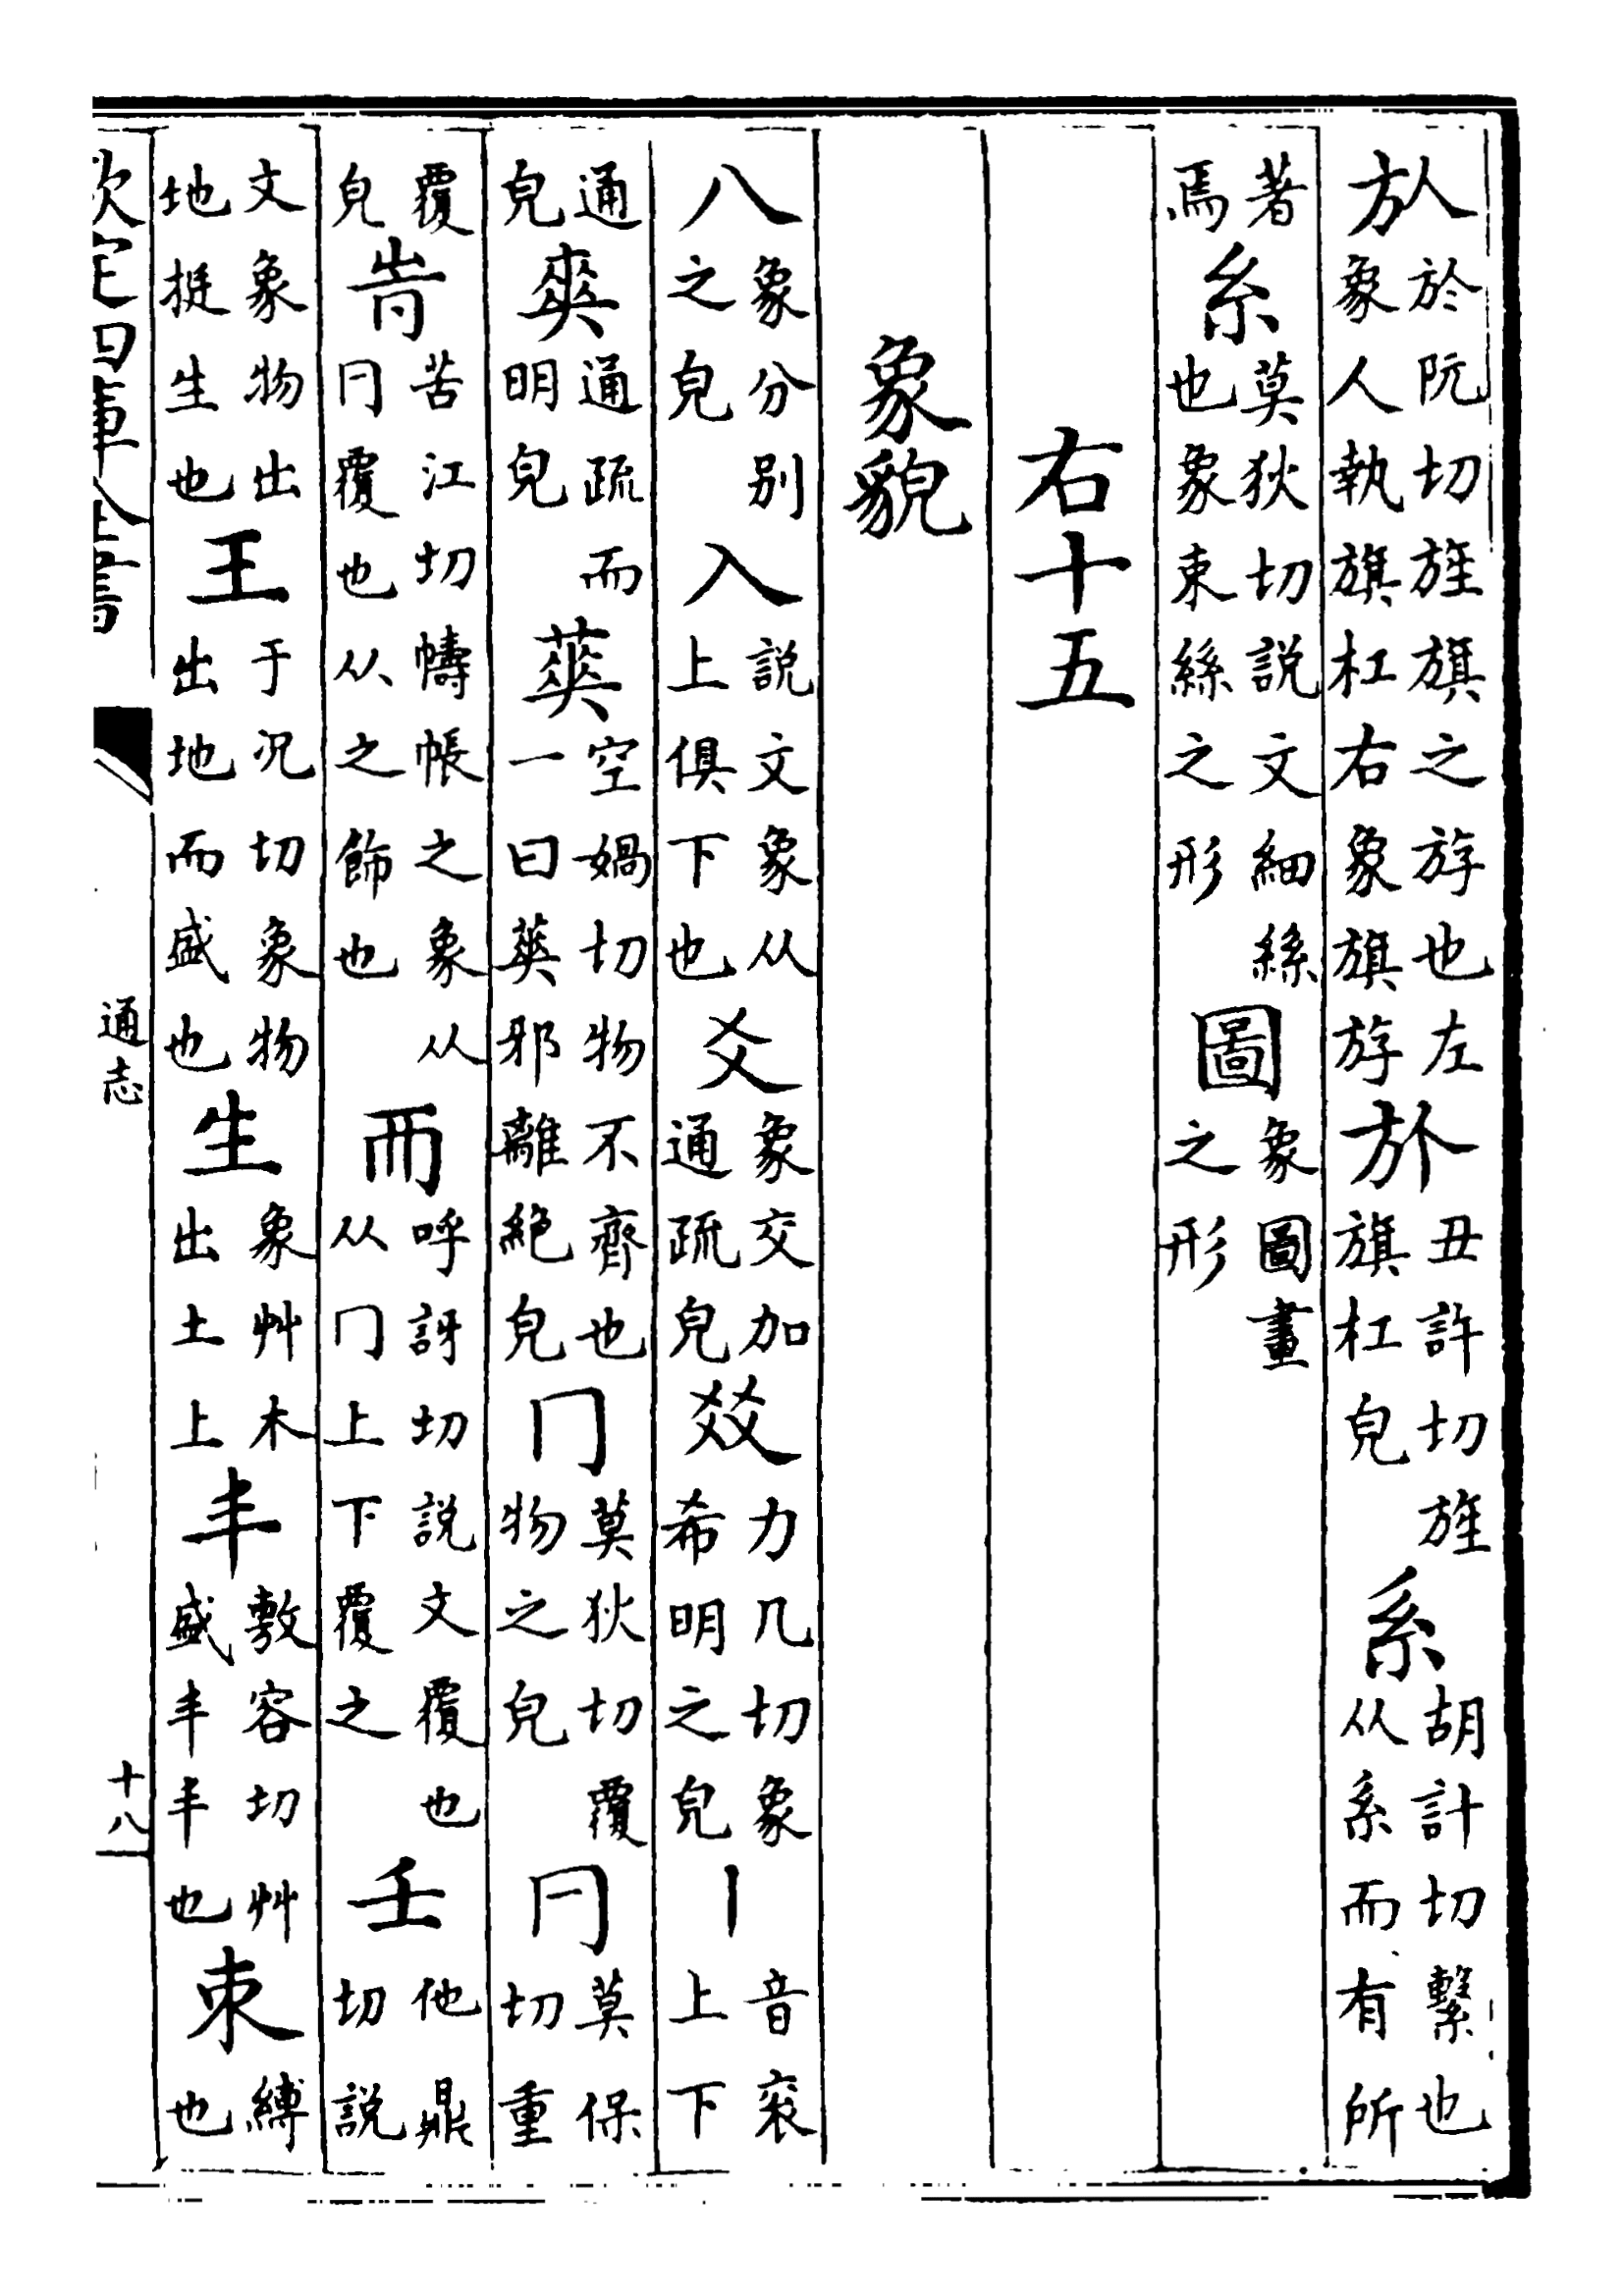 㫃於阮切旌旗之斿也左象人執旗杠右象旗斿𣃦丑許切旌旗杠皃系胡計切繫也从系而有所
著焉糸莫狄切説文細絲也象束絲之形圖象圖畫之形
右十五
象貌
八象分别之皃入説文象从上俱下也爻象交加通疏皃㸚力几切象希明之皃丨音衮上下
通皃爽通疏而明皃㼌空媧切物不齊也一曰㼌邪離絶皃冂莫狄切覆物之皃冃莫保切重
覆皃㞦苦江切幬帳之象从冃覆也从之飾也襾呼訝切説文覆也从冂上下覆之𡈼他鼎切説
文象物出地挺生也王于况切象物出地而盛也生象艸木出土上丰敷容切艸盛丰丰也朿縛也
欽定四庫全書
通志
十八